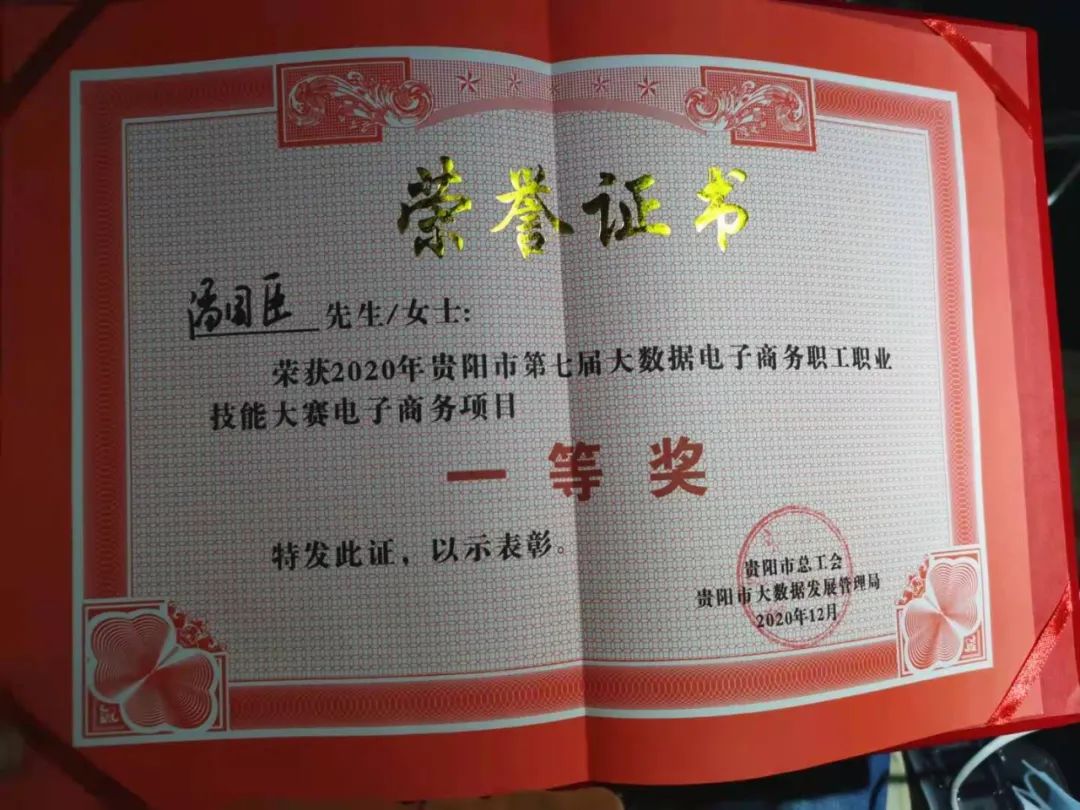 荣誉证书
潘国臣 先生/女士:
荣获2020年贵阳市第七届大数据电子商务职工职业
技能大赛电子商务项目
一等奖
特发此证，以示表彰。
贵阳市总工会
贵阳市大数据发展管理局
2020年12月